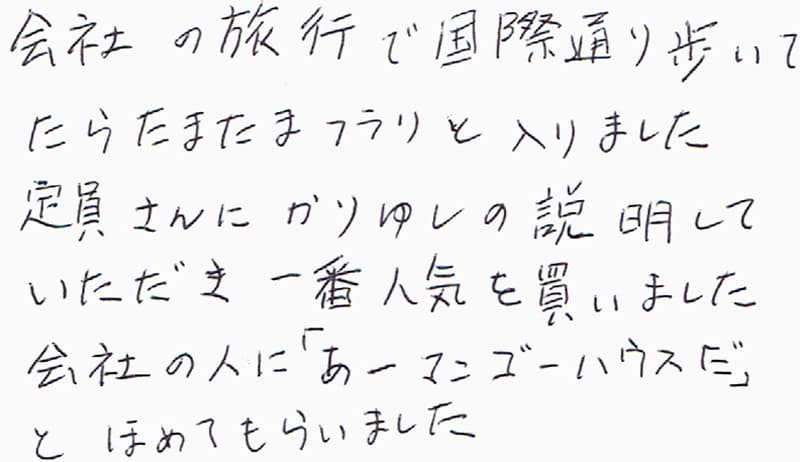 会社の旅行で国際通り歩いて
たらたまたまフラリと入りました
定員さんにかりゆしの説明して
いただき一番人気を買いました
会社の人に「あーマンゴーハウスだ」
とほめてもらいました